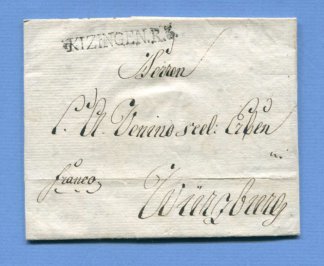 KIZINGEN.R.3.
Herren
C. A. Venino seel: Erben
franco
Würzburg